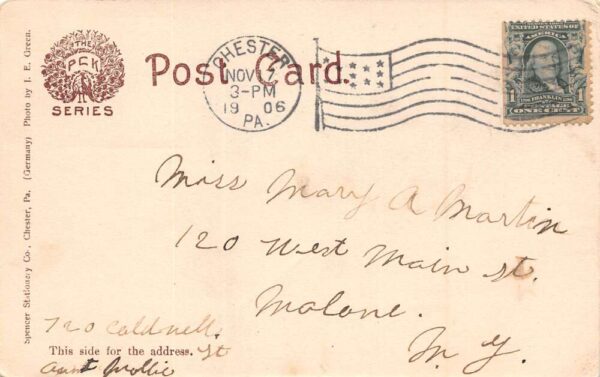 THE
P C K
SERIES
Post Card.
CHESTER
NOV 7
3-PM
19 06
PA.
UNITED STATES OF AMERICA
1 FRANKLIN 1
ONE CENT
Miss Mary A Martin
120 West Main st.
Malone.
N. Y.
720 Caldwell
St
This side for the address.
Aunt Mollie
Spencer Stationery Co., Chester, Pa. (Germany) Photo by J. E. Green.